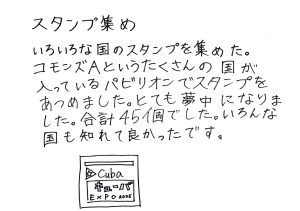 スタンプ集め
いろいろな国のスタンプを集めた。
コモンズAというたくさんの国が
入っているパビリオンでスタンプを
あつめました。とても夢中になりまし
た。合計45個でした。いろんな
国も知れて良かったです。
Cuba
キューバ
EXPO 2025